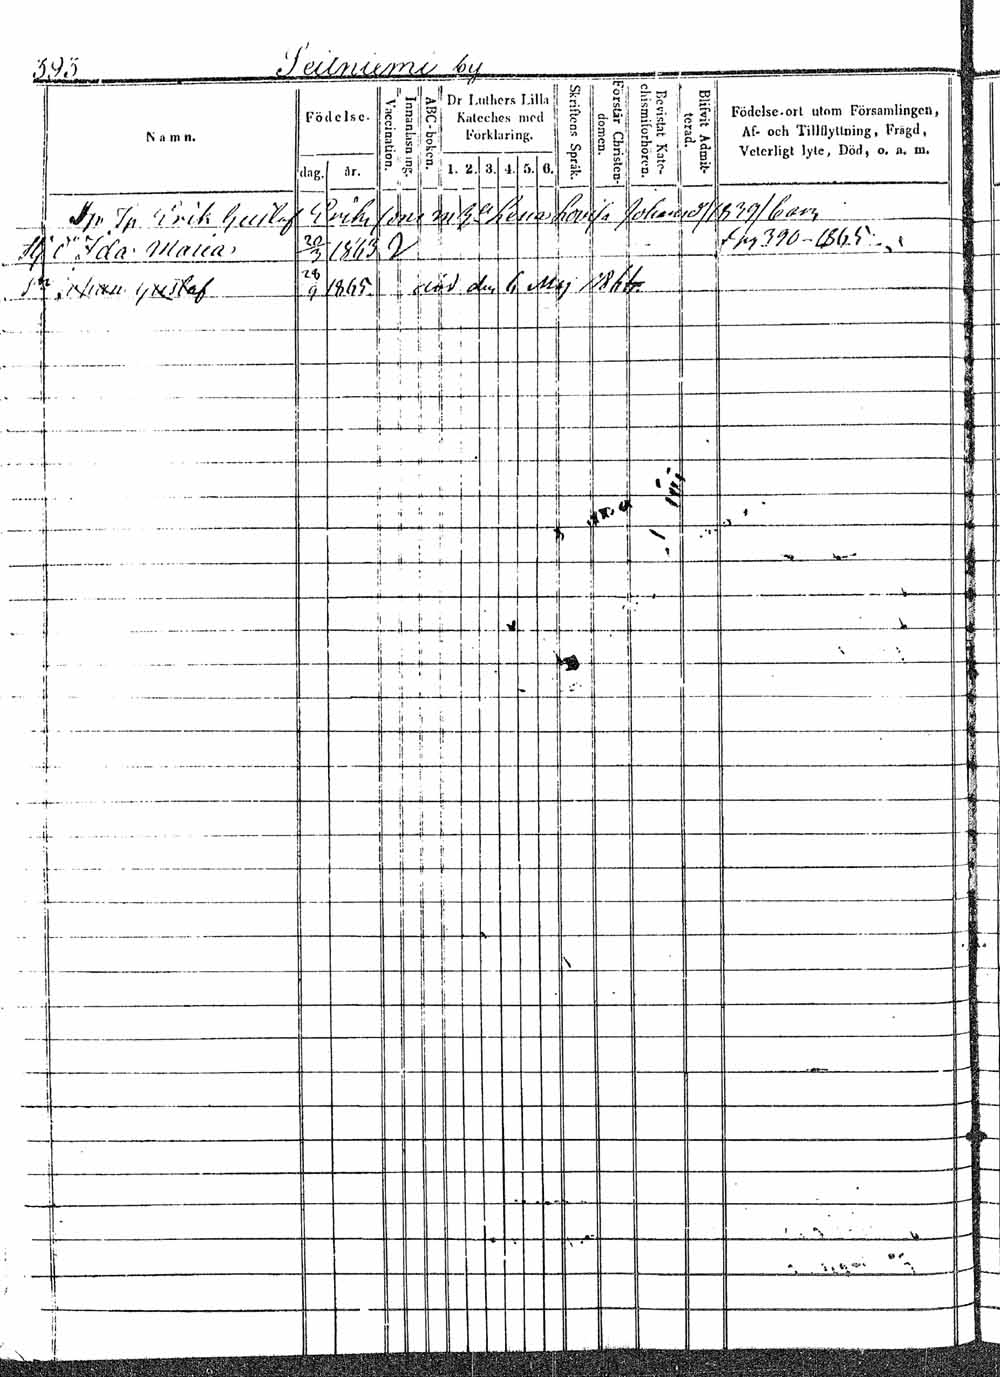 393 Seilniemi by
Namn.
Födelse.
dag. år.
Vaccination.
Innanläsning.
ABC-boken.
Dr Luthers Lilla
Kateches med
Förklaring.
1. 2. 3. 4. 5. 6.
Skriftens Språk.
Förstår Christen-
domen.
Bevistat Kate-
chismiförhören.
Blifvit Admit-
terad.
Födelse-ort utom Församlingen,
Af- och Tillflyttning, Frägd,
Veterligt lyte, Död, o. a. m.
Erik Gustaf Eriks sons m Lena Lovisa Johansd / 1839 / barn
Ida Maria 20/3 1863 V pag 390-1865
Gustaf 28/9 1865. död den 6 Maj 1866